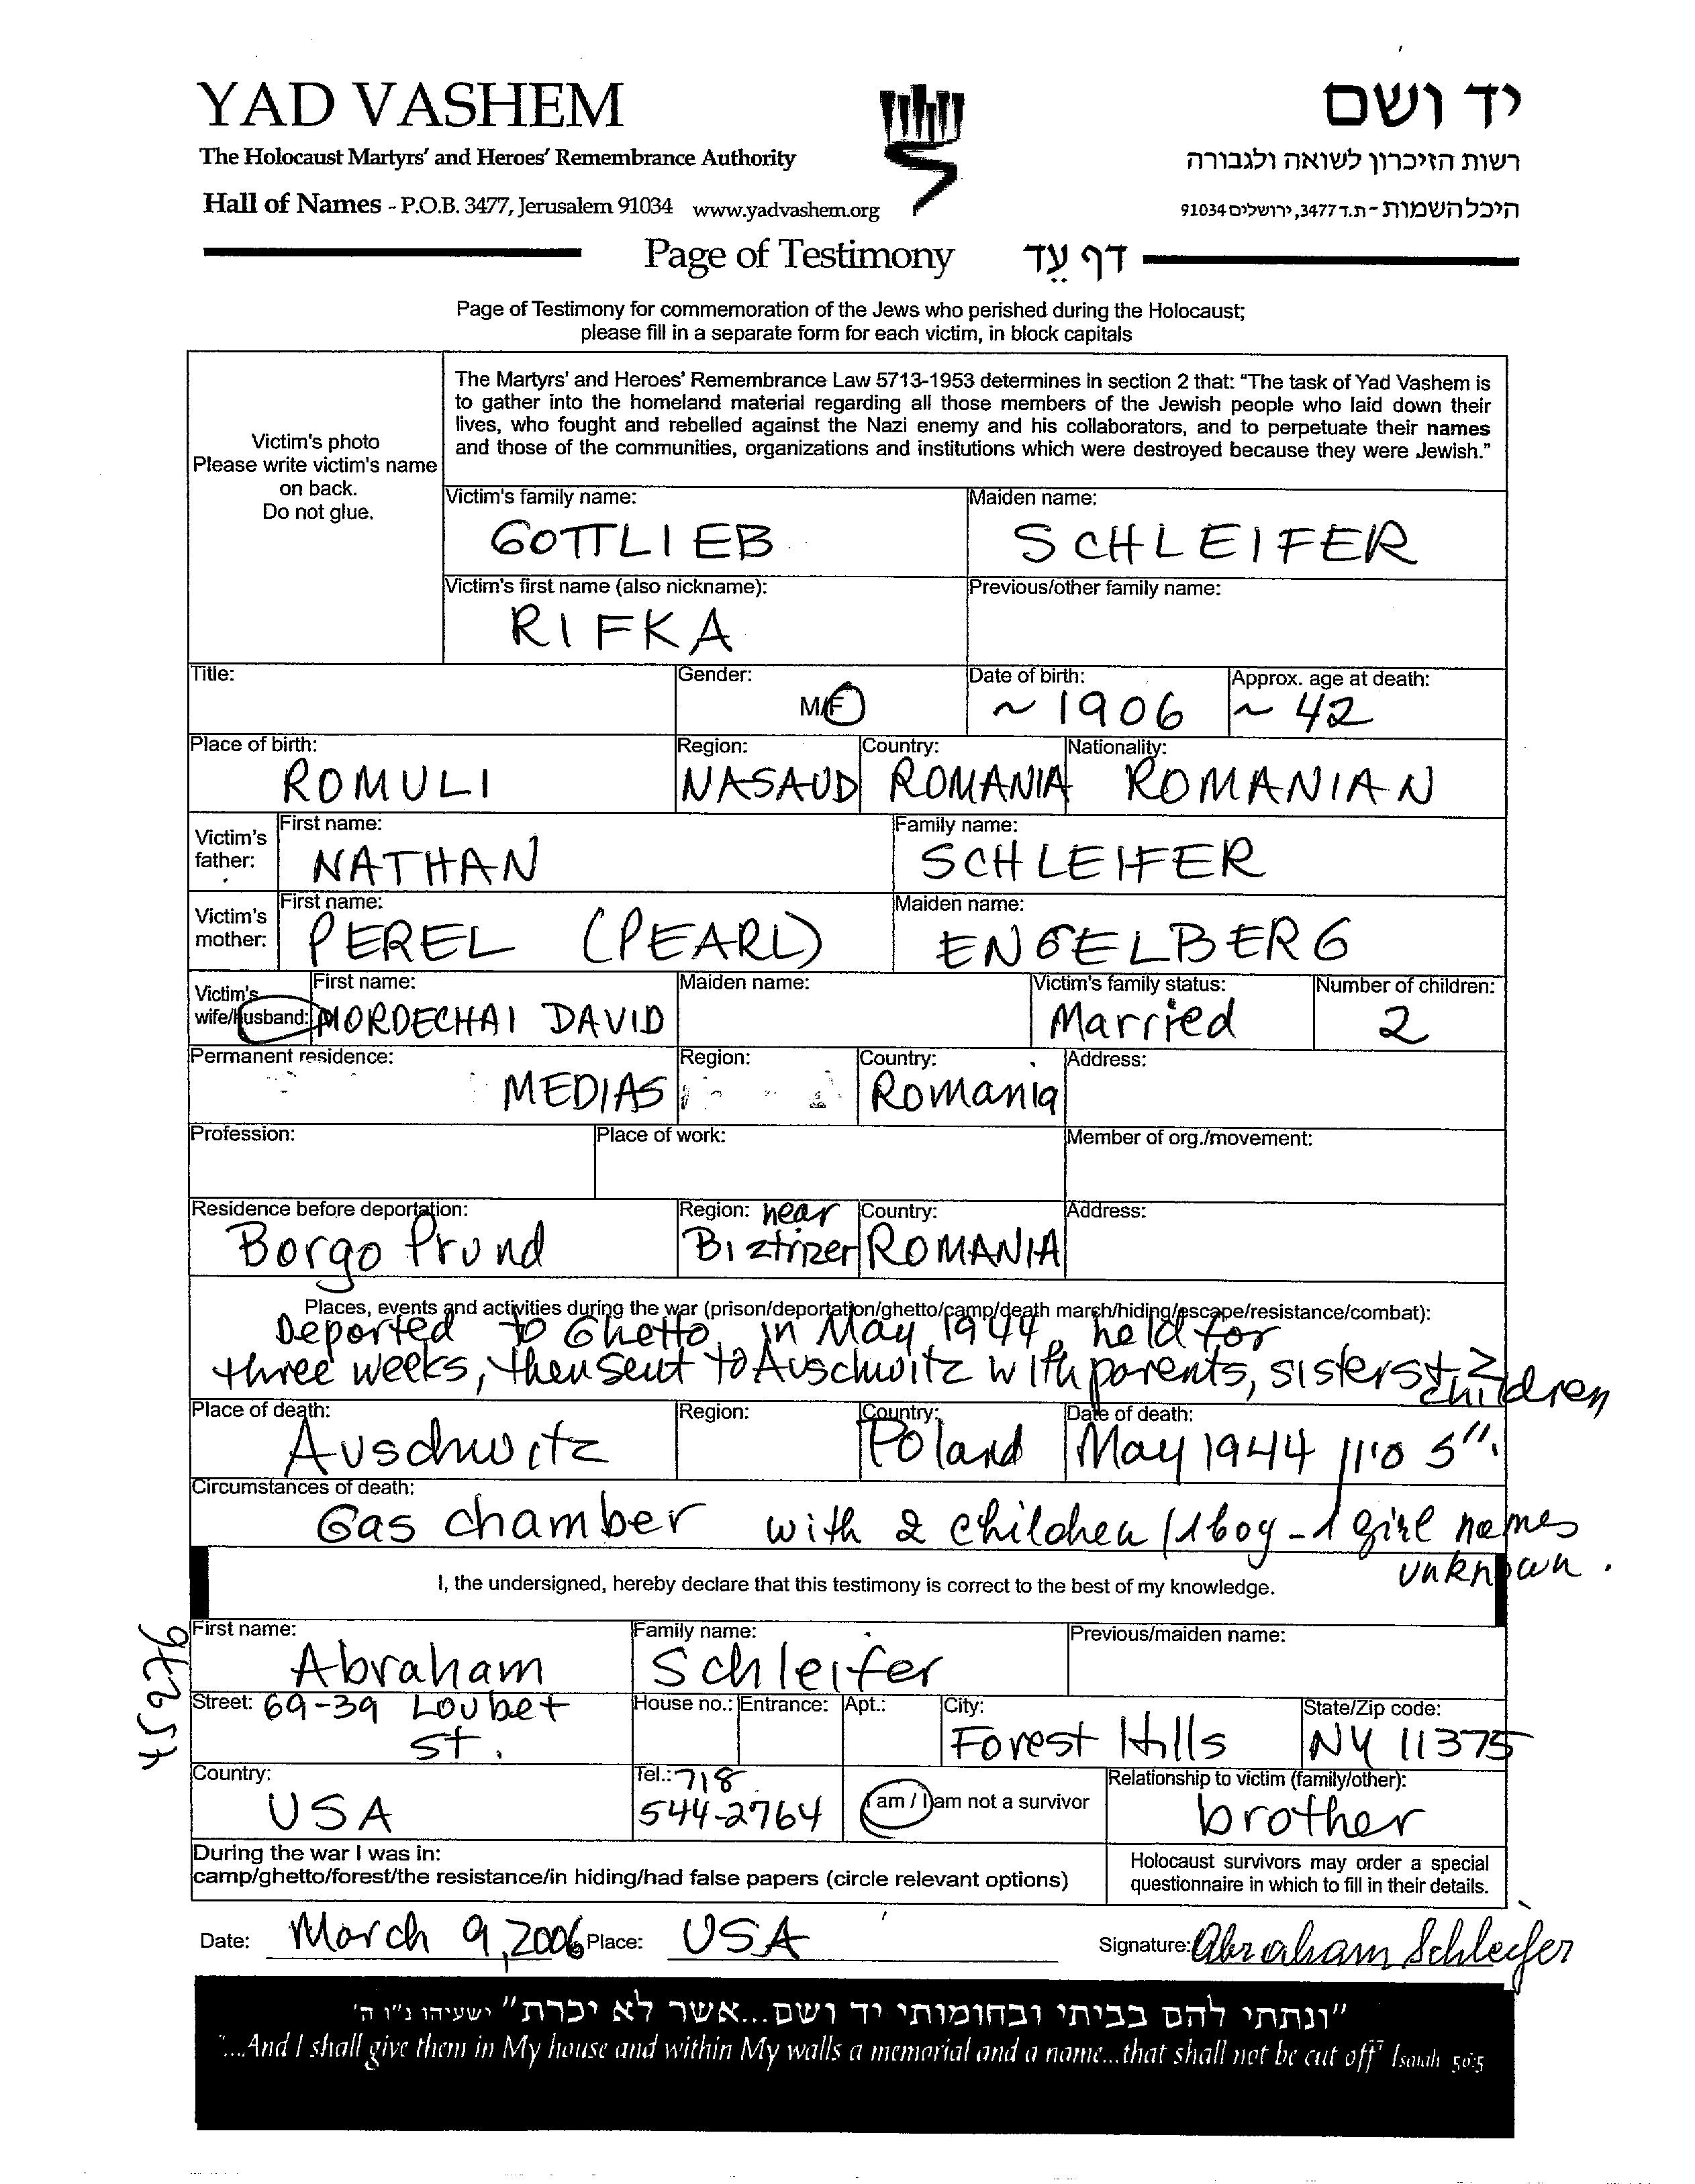 YAD VASHEM
יד ושם
The Holocaust Martyrs' and Heroes' Remembrance Authority
רשות הזיכרון לשואה ולגבורה
Hall of Names - P.O.B. 3477, Jerusalem 91034 www.yadvashem.org
היכל השמות - ת.ד 3477, ירושלים 91034
Page of Testimony דף עֵד
Page of Testimony for commemoration of the Jews who perished during the Holocaust;
please fill in a separate form for each victim, in block capitals
The Martyrs' and Heroes' Remembrance Law 5713-1953 determines in section 2 that: "The task of Yad Vashem is
to gather into the homeland material regarding all those members of the Jewish people who laid down their
lives, who fought and rebelled against the Nazi enemy and his collaborators, and to perpetuate their names
and those of the communities, organizations and institutions which were destroyed because they were Jewish."
Victim's photo
Please write victim's name
on back.
Do not glue.
Victim's family name: Maiden name:
GOTTLIEB SCHLEIFER
Victim's first name (also nickname): Previous/other family name:
RIFKA
Title: Gender: Date of birth: Approx. age at death:
M/F ~ 1906 ~ 42
Place of birth: Region: Country: Nationality:
ROMULI NASAUD ROMANIA ROMANIAN
Victim's father: First name: Family name:
NATHAN SCHLEIFER
Victim's mother: First name: Maiden name:
PEREL (PEARL) ENGELBERG
Victim's wife/husband: First name: Maiden name: Victim's family status: Number of children:
MORDECHAI DAVID Married 2
Permanent residence: Region: Country: Address:
MEDIAS Romania
Profession: Place of work: Member of org./movement:
Residence before deportation: Region: near Country: Address:
Borgo Prund Biztrizer ROMANIA
Places, events and activities during the war (prison/deportation/ghetto/camp/death march/hiding/escape/resistance/combat):
Deported to Ghetto in May 1944, held for
three weeks, then sent to Auschwitz with parents, sisters + 2
children
Place of death: Region: Country: Date of death:
Auschwitz Poland May 1944
Circumstances of death:
Gas chamber with 2 children (1 boy - 1 girl names
unknown.
I, the undersigned, hereby declare that this testimony is correct to the best of my knowledge.
First name: Family name: Previous/maiden name:
Abraham Schleifer
Street: 69-39 Loubet House no.: Entrance: Apt.: City: State/Zip code:
St. Forest Hills NY 11375
Country: Tel.: 718 Relationship to victim (family/other):
USA 544-2764 I am / I am not a survivor brother
During the war I was in:
camp/ghetto/forest/the resistance/in hiding/had false papers (circle relevant options)
Holocaust survivors may order a special
questionnaire in which to fill in their details.
Date: March 9, 2006 Place: USA Signature: Abraham Schleifer
"ונתתי להם בביתי ובחומותי יד ושם...אשר לא יכרת" ישעיהו נ"ו ה'
"...And I shall give them in My house and within My walls a memorial and a name...that shall not be cut off" Isaiah 56:5